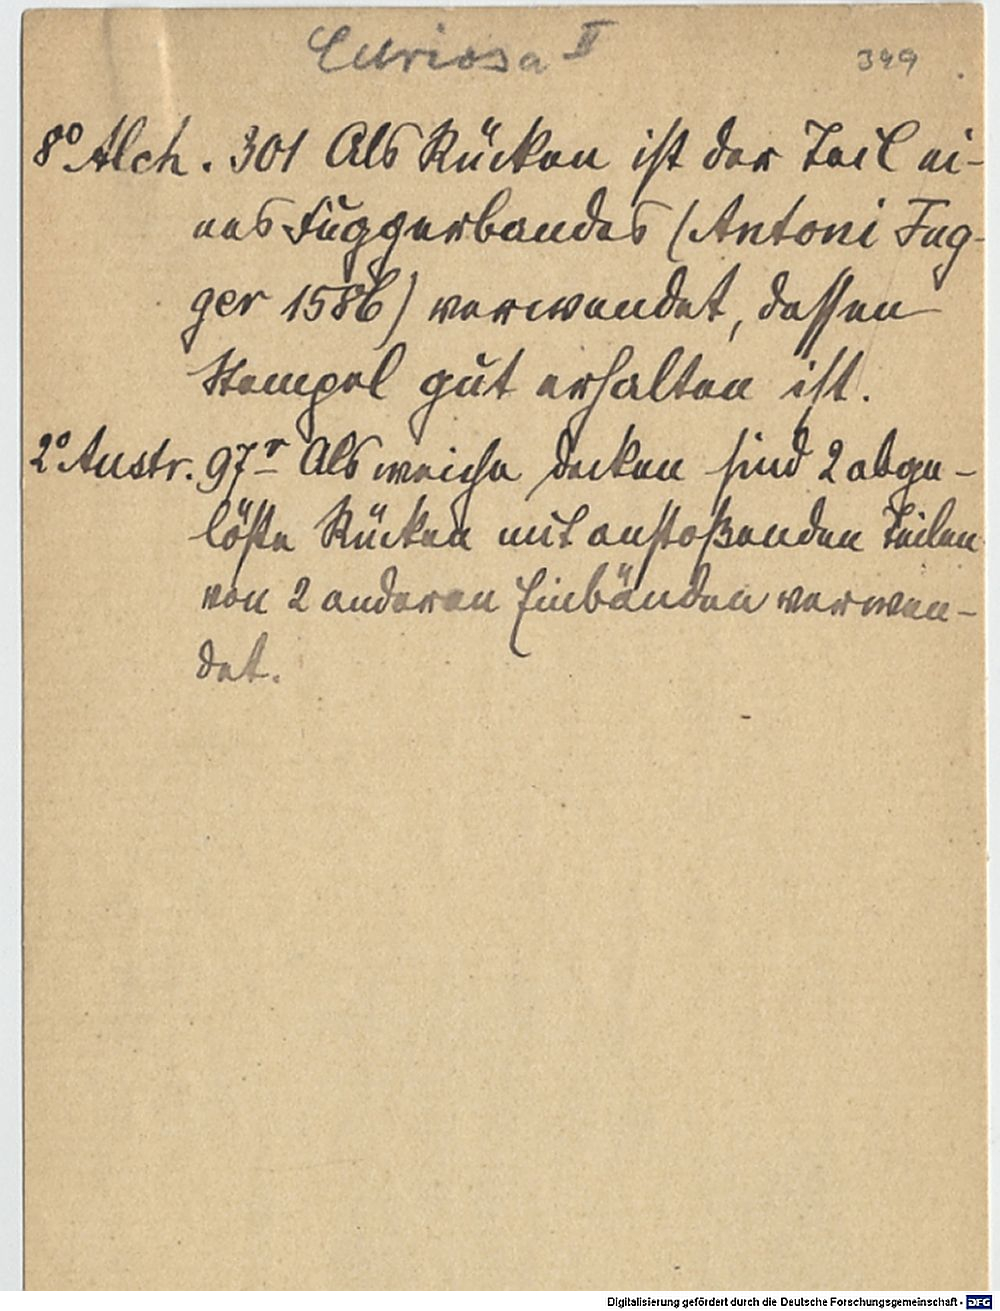 Curiosa II
349
8° Alch. 301 Als Rücken ist der Teil ei-
nes Fuggerbandes (Antoni Fug-
ger 1586) verwendet, dessen
Stempel gut erhalten ist.
2° Austr. 97r Als weiche Decken sind 2 abge-
löste Rücken mit anstoßenden Teilen
von 2 anderen Einbänden verwen-
det.
Digitalisierung gefördert durch die Deutsche Forschungsgemeinschaft - DFG